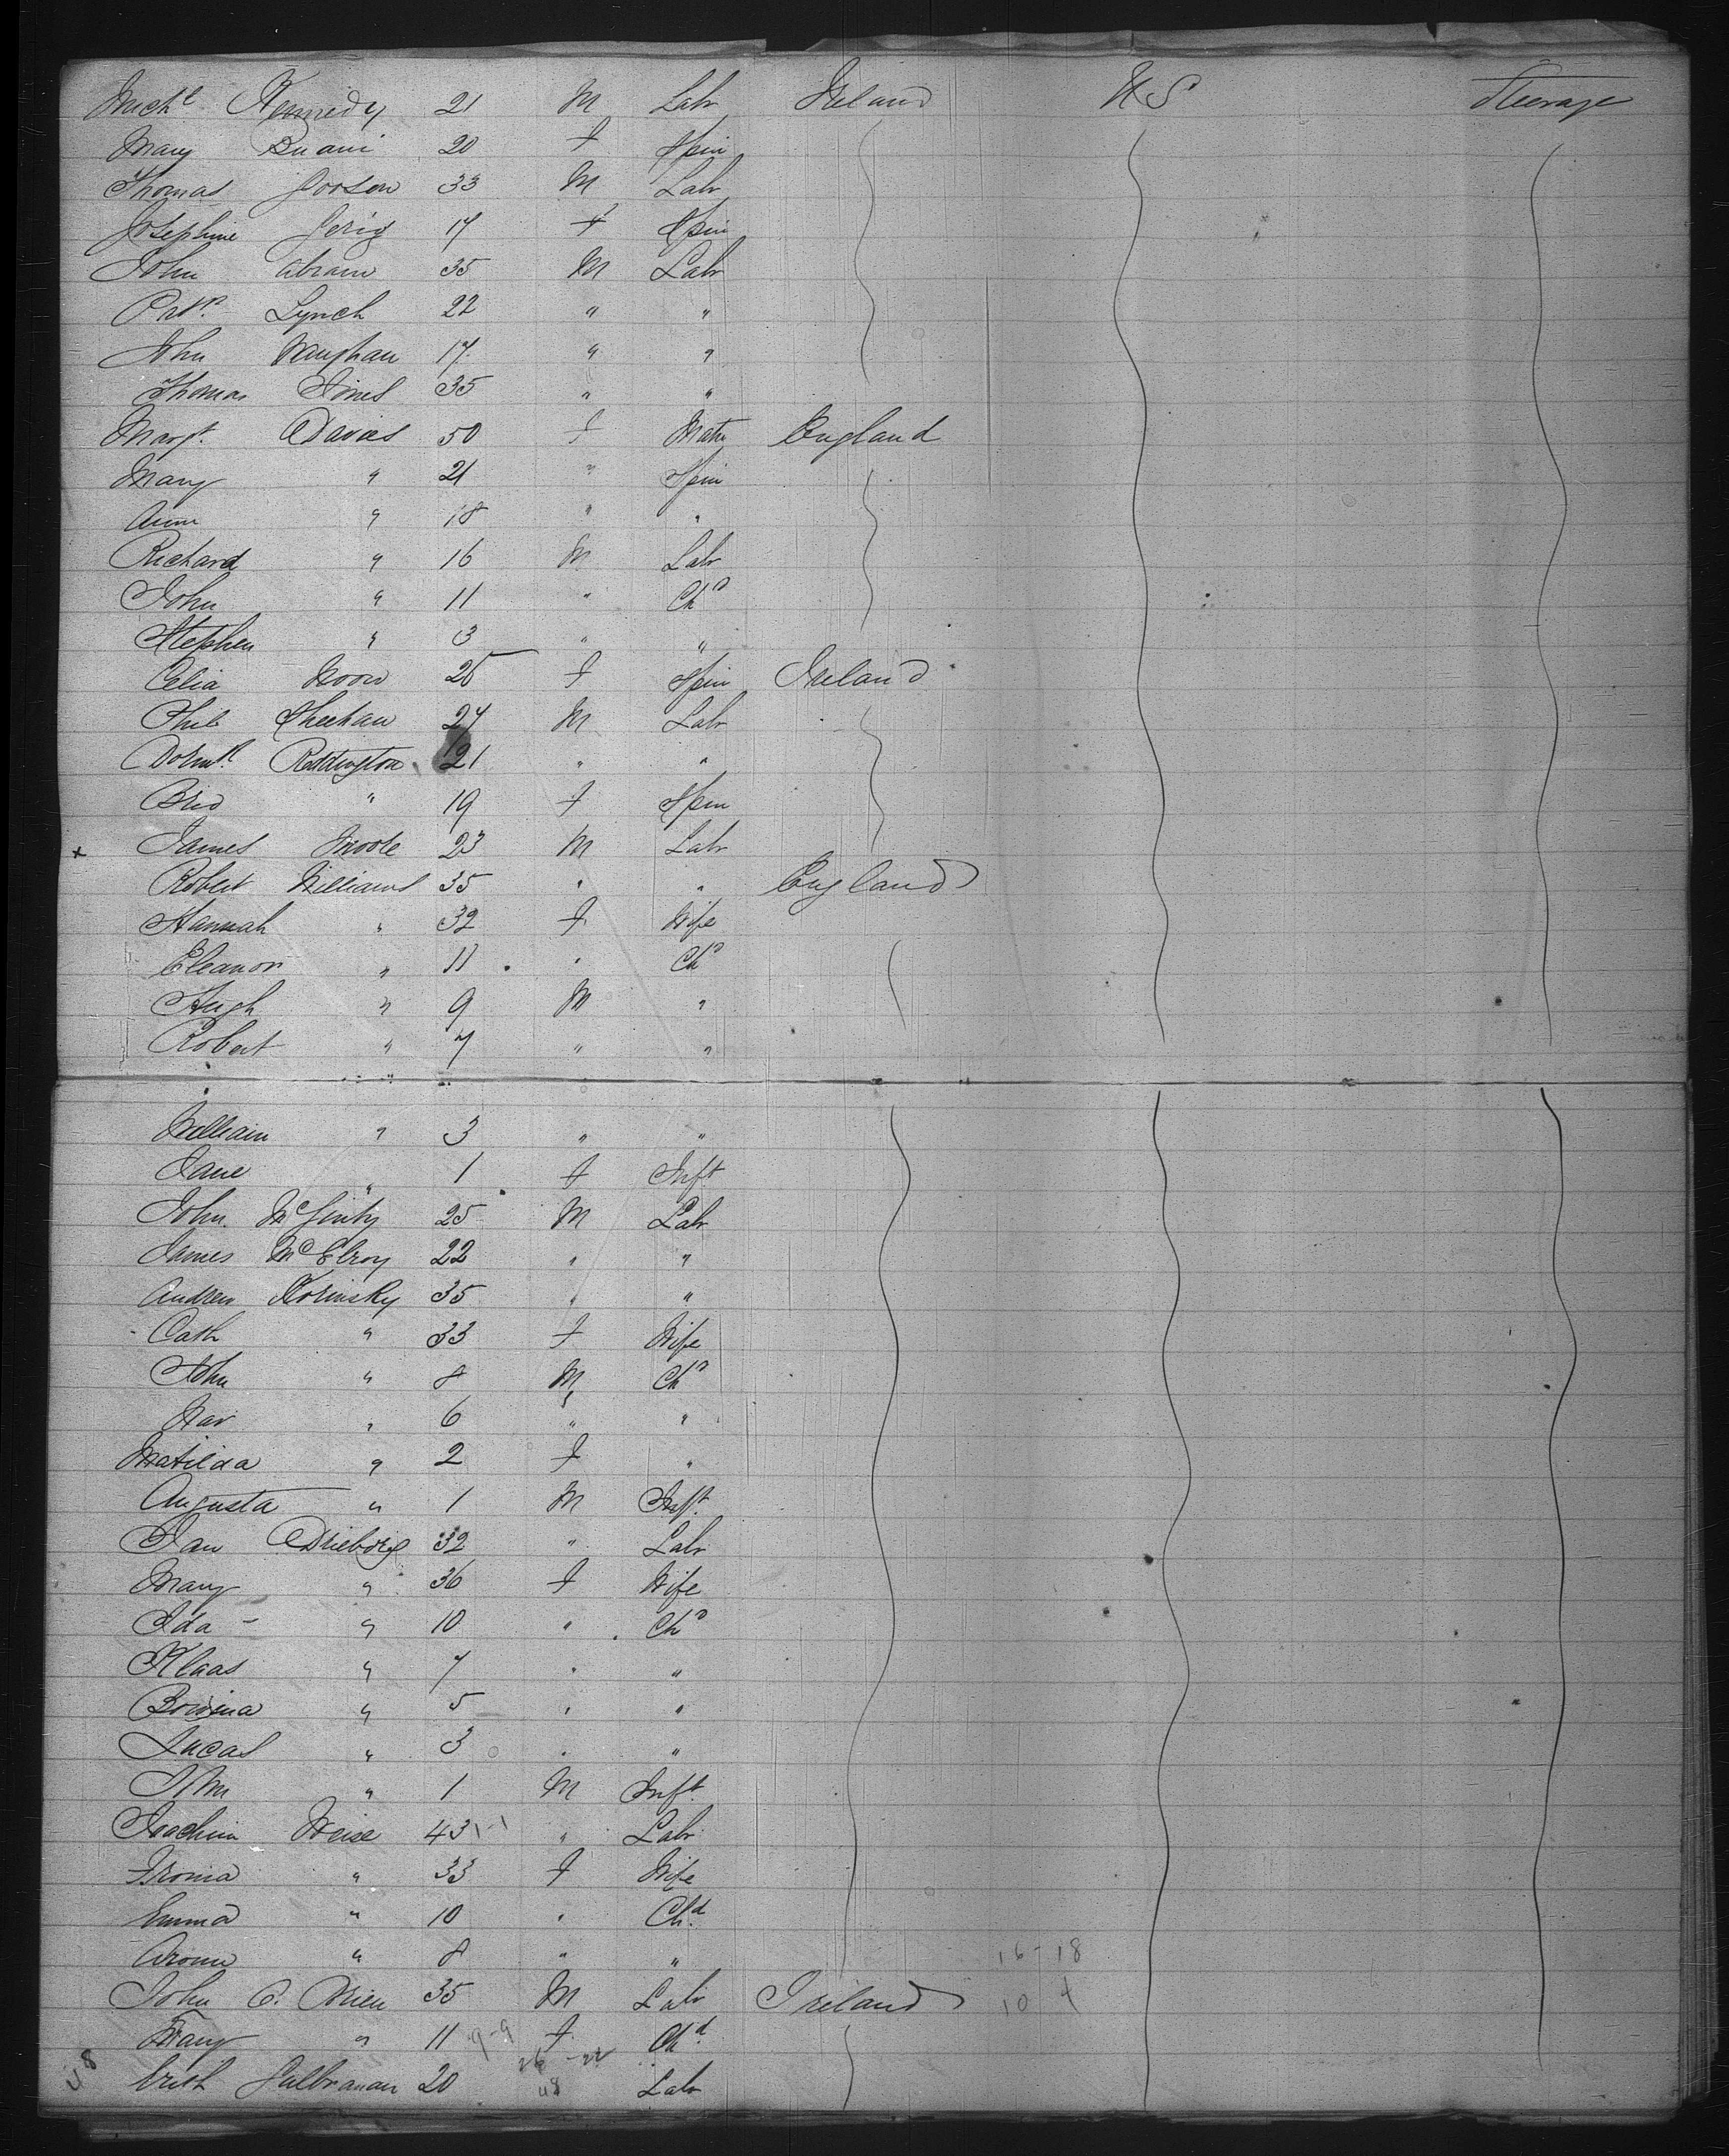 Mich.l Kennedy 21 M Labr Ireland U S Steerage
Mary 20 f Spin
Thomas 33 M Labr
Josephine 17 f Spin
John Abram 35 M Labr
Patk Lynch 22 " "
John Vaughan 17 " "
Thomas Jones 35 " "
Margt. Davies 50 f Matn England
Mary " 21 " Spin
Anne " 18 " "
Richard " 16 M Labr
John " 11 " Chd
Stephen " 3 " "
Celia 25 f Spin Ireland
Phil Sheehan 27 M Labr
Reddington 21 " "
Brid " 19 f Spin
x James Moore 23 M Labr
Robert Williams 35 " " England
Hannah " 32 f Wife
Eleanor " 11 " Chd
Hugh " 9 M "
Robert " 7 " "
William " 3 " "
Jane " 1 f Inft
John McGinty 25 M Labr
James McElroy 22 " "
Andrew Korinsky 35 " "
Cath " 33 f Wife
John " 8 M Chd
" 6 " "
Matilda " 2 f "
Augusta " 1 M Inft.
Jan 32 " Labr
Mary " 36 f Wife
Ida " 10 " Chd
Klaas " 7 " "
" 5 " "
Lucas " 3 " "
" 1 M Inft.
Joachim Weise 43 " Labr
" 33 f Wife
Emma " 10 " Chd.
" 8 " "
16-18
John O. Brien 35 M Labr Ireland 10 4
Mary " 11 9-9 f Chd.
48 20 48 Labr